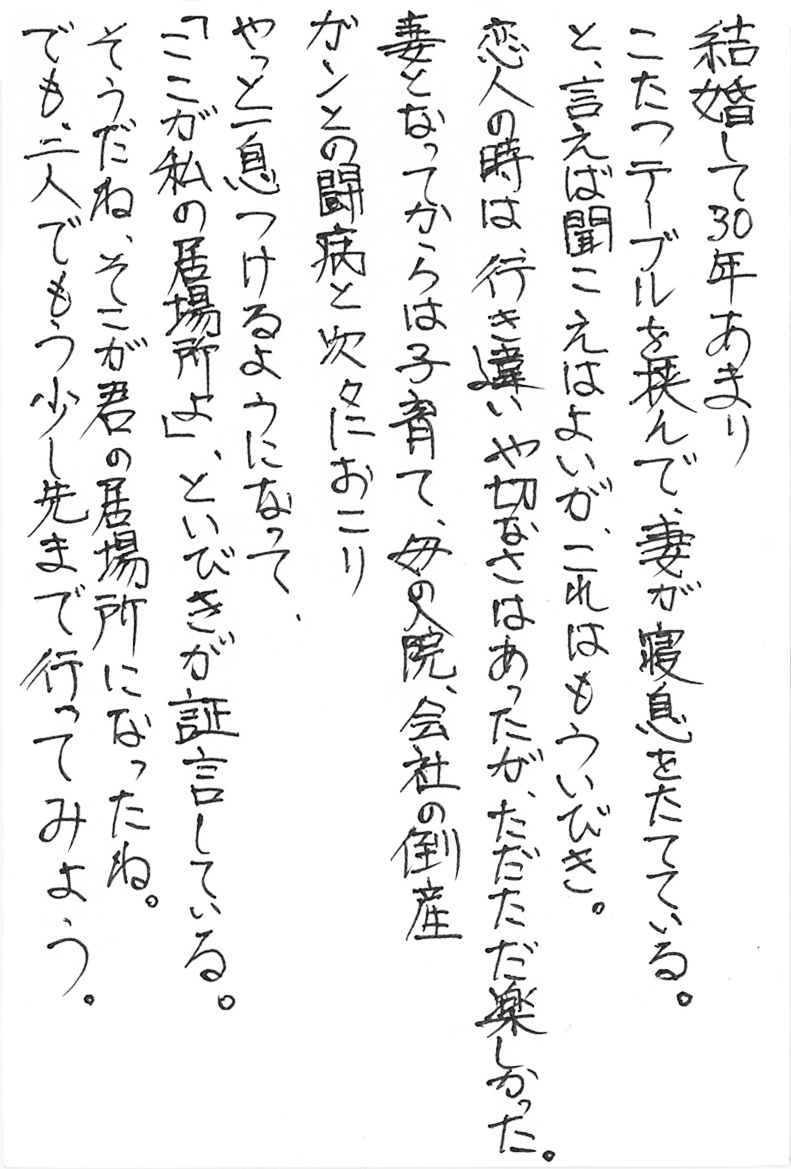 結婚して30年あまり
こたつテーブルを挟んで、妻が寝息をたてている。
と、言えば聞こえはよいが、これはもういびき。
恋人の時は、行き違いや切なさはあったが、ただただ楽しかった。
妻となってからは子育て、母の入院、会社の倒産
ガンとの闘病と次々におこり
やっと一息つけるようになって、
「ここが私の居場所よ」、といびきが証言している。
そうだね、そこが君の居場所になったね。
でも、二人でもう少し先まで行ってみよう。